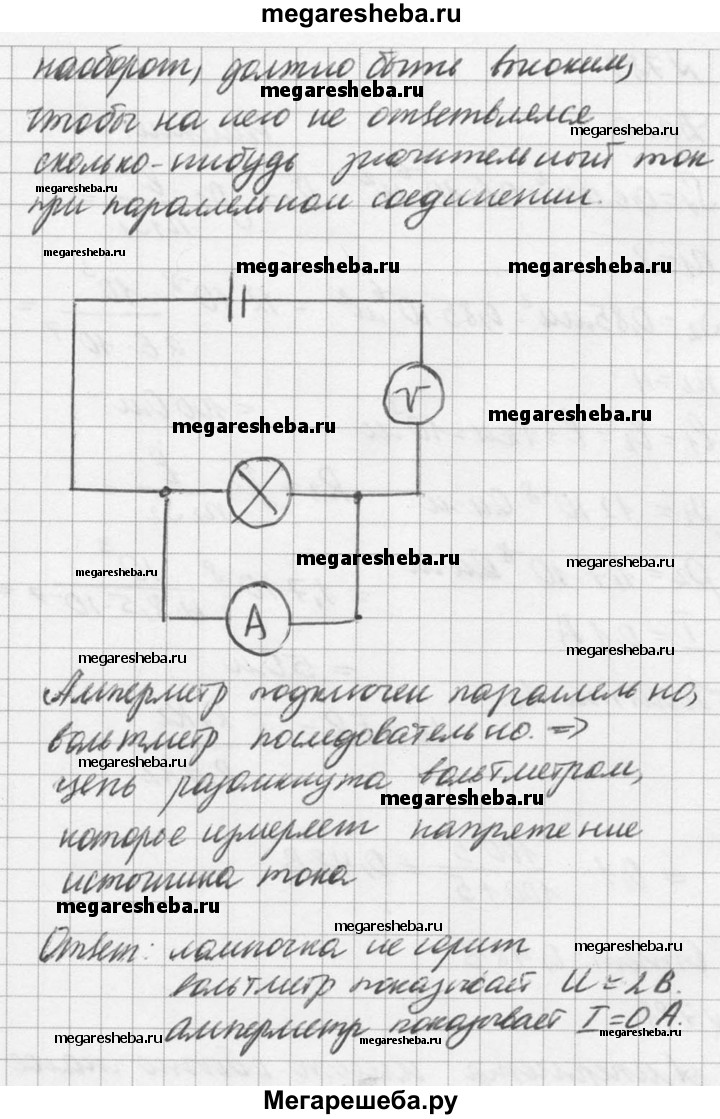 megaresheba.ru
наоборот, должно быть высоким,
megaresheba.ru
чтобы на него не ответвлялся
megaresheba.ru
сколько-нибудь значительный ток
megaresheba.ru
при параллельном соединении.
megaresheba.ru
megaresheba.ru megaresheba.ru
V
megaresheba.ru megaresheba.ru
megaresheba.ru megaresheba.ru
megaresheba.ru
A
megaresheba.ru megaresheba.ru
Амперметр подключен параллельно,
вольтметр последовательно. =>
megaresheba.ru
цепь разомкнута вольтметром,
megaresheba.ru
которые измеряет напряжение
источника тока
megaresheba.ru
megaresheba.ru
Ответ: лампочка не горит
megaresheba.ru
вольтметр показывает U = 2 В.
амперметр показывает I = 0 А.
megaresheba.ru megaresheba.ru megaresheba.ru
Мегарешеба.ру